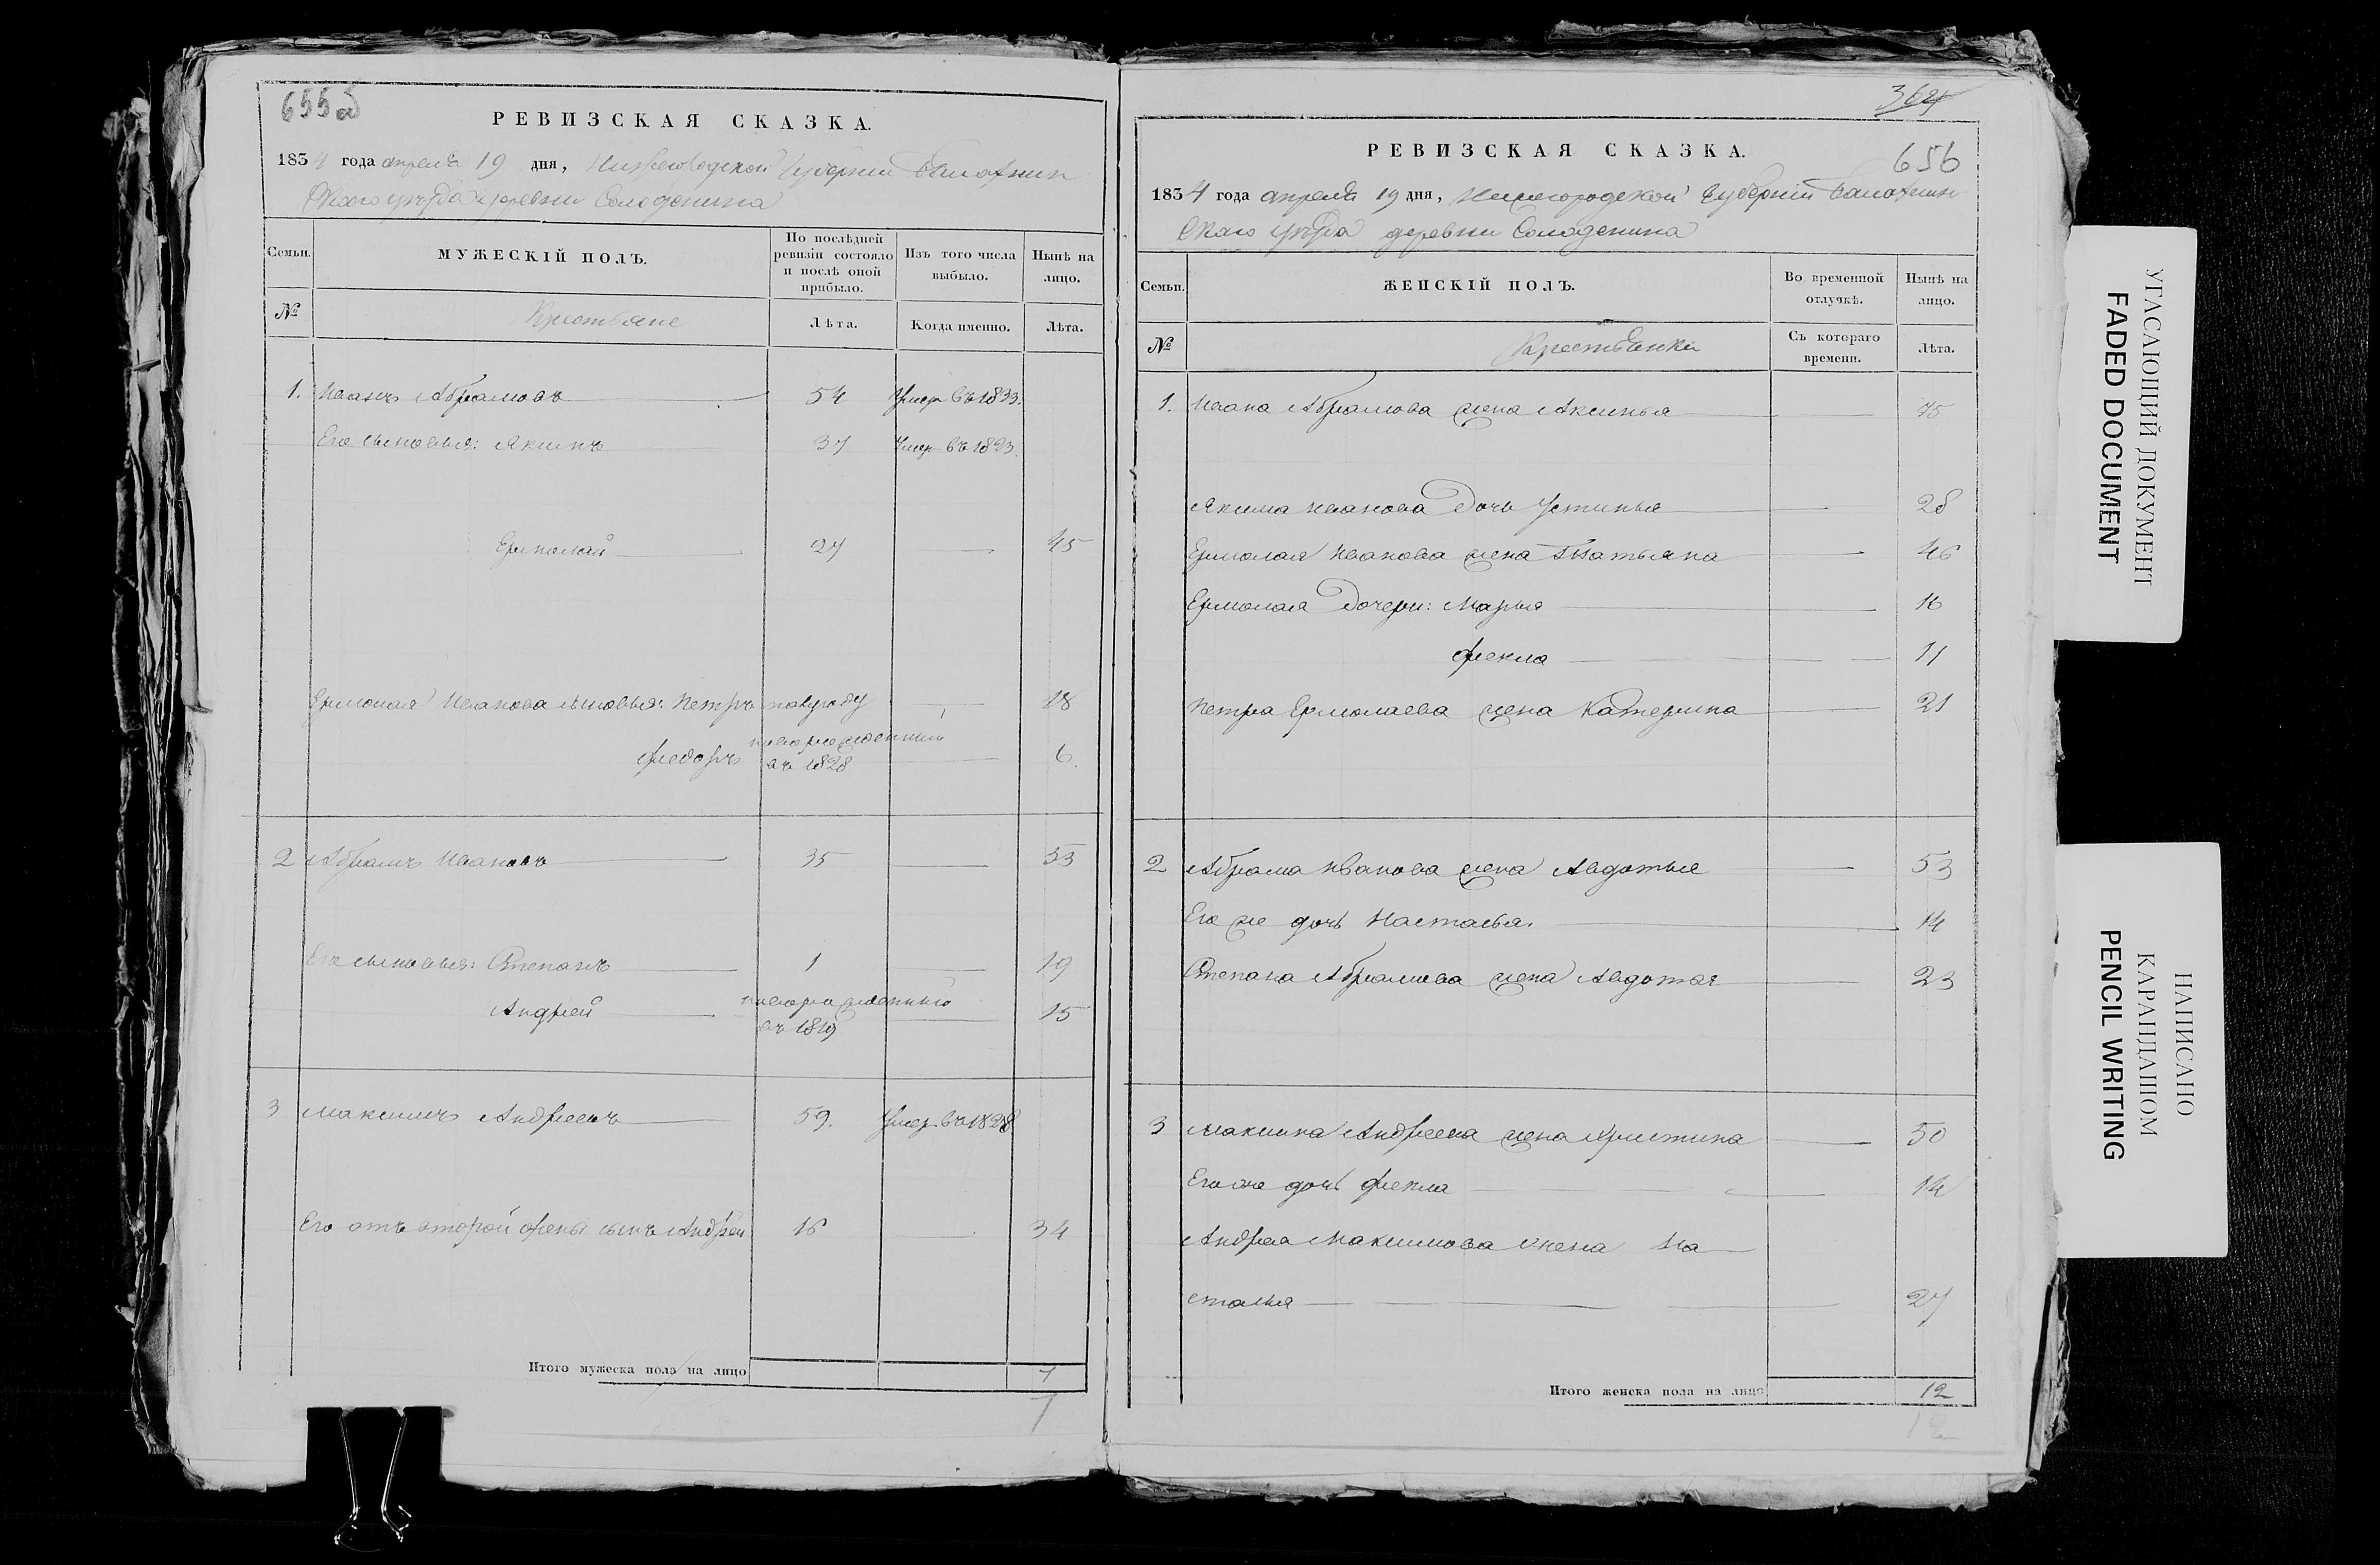 655 об
РЕВИЗСКАЯ СКАЗКА.
1834 года апреля 19 дня, Нижегородской Губернии Балахнин
скаго уезда деревни Солоденина
Семьи. МУЖЕСКІЙ ПОЛЪ. По послѣдней ревизіи состояло и послѣ оной прибыло. Изъ того числа выбыло. Нынѣ на лицо.
№ Крестьяне Лѣта. Когда именно. Лѣта.
1. Иванъ Абрамовъ 54 Умер въ 1833.
Его сыновья: Якимъ 37 Умер въ 1823.
Ермолай 27 45
Ермолая Иванова сыновья: Петръ полугоду 18
Федоръ новорожденный въ 1828 6.
2 Абрамъ Ивановъ 35 53
Его сыновья: Степанъ 1 19
Андрей новорожденный въ 1819 15
3 Максимъ Андреевъ 59. Умер въ 1828
Его отъ второй жены сынъ Андрей 16 34
Итого мужеска пола на лицо 7
7
364
РЕВИЗСКАЯ СКАЗКА.
656
1834 года апреля 19 дня, Нижегородской Губерніи Балахнин
скаго уезда деревни Солоденина
Семьи. ЖЕНСКІЙ ПОЛЪ. Во временной отлучкѣ. Нынѣ на лицо.
№ Крестьянки Съ котораго времени. Лѣта.
1. Ивана Абрамова жена Аксинья 75
Якима Иванова дочь Устинья 28
Ермолая Иванова жена Татьяна 46
Ермолая дочери: Марья 16
Фекла 11
Петра Ермолаева жена Катерина 21
2 Абрама Иванова жена Авдотья 53
Его же дочь Настасья. 14
Степана Абрамова жена Авдотья 23
3 Максима Андреева жена Христина 50
Его же дочь Фекла 14
Андрея Максимова жена На
стасья 27
Итого женска пола на лицо 12
12
УГАСАЮЩИЙ ДОКУМЕНТ
FADED DOCUMENT
НАПИСАНО
КАРАНДАШОМ
PENCIL WRITING